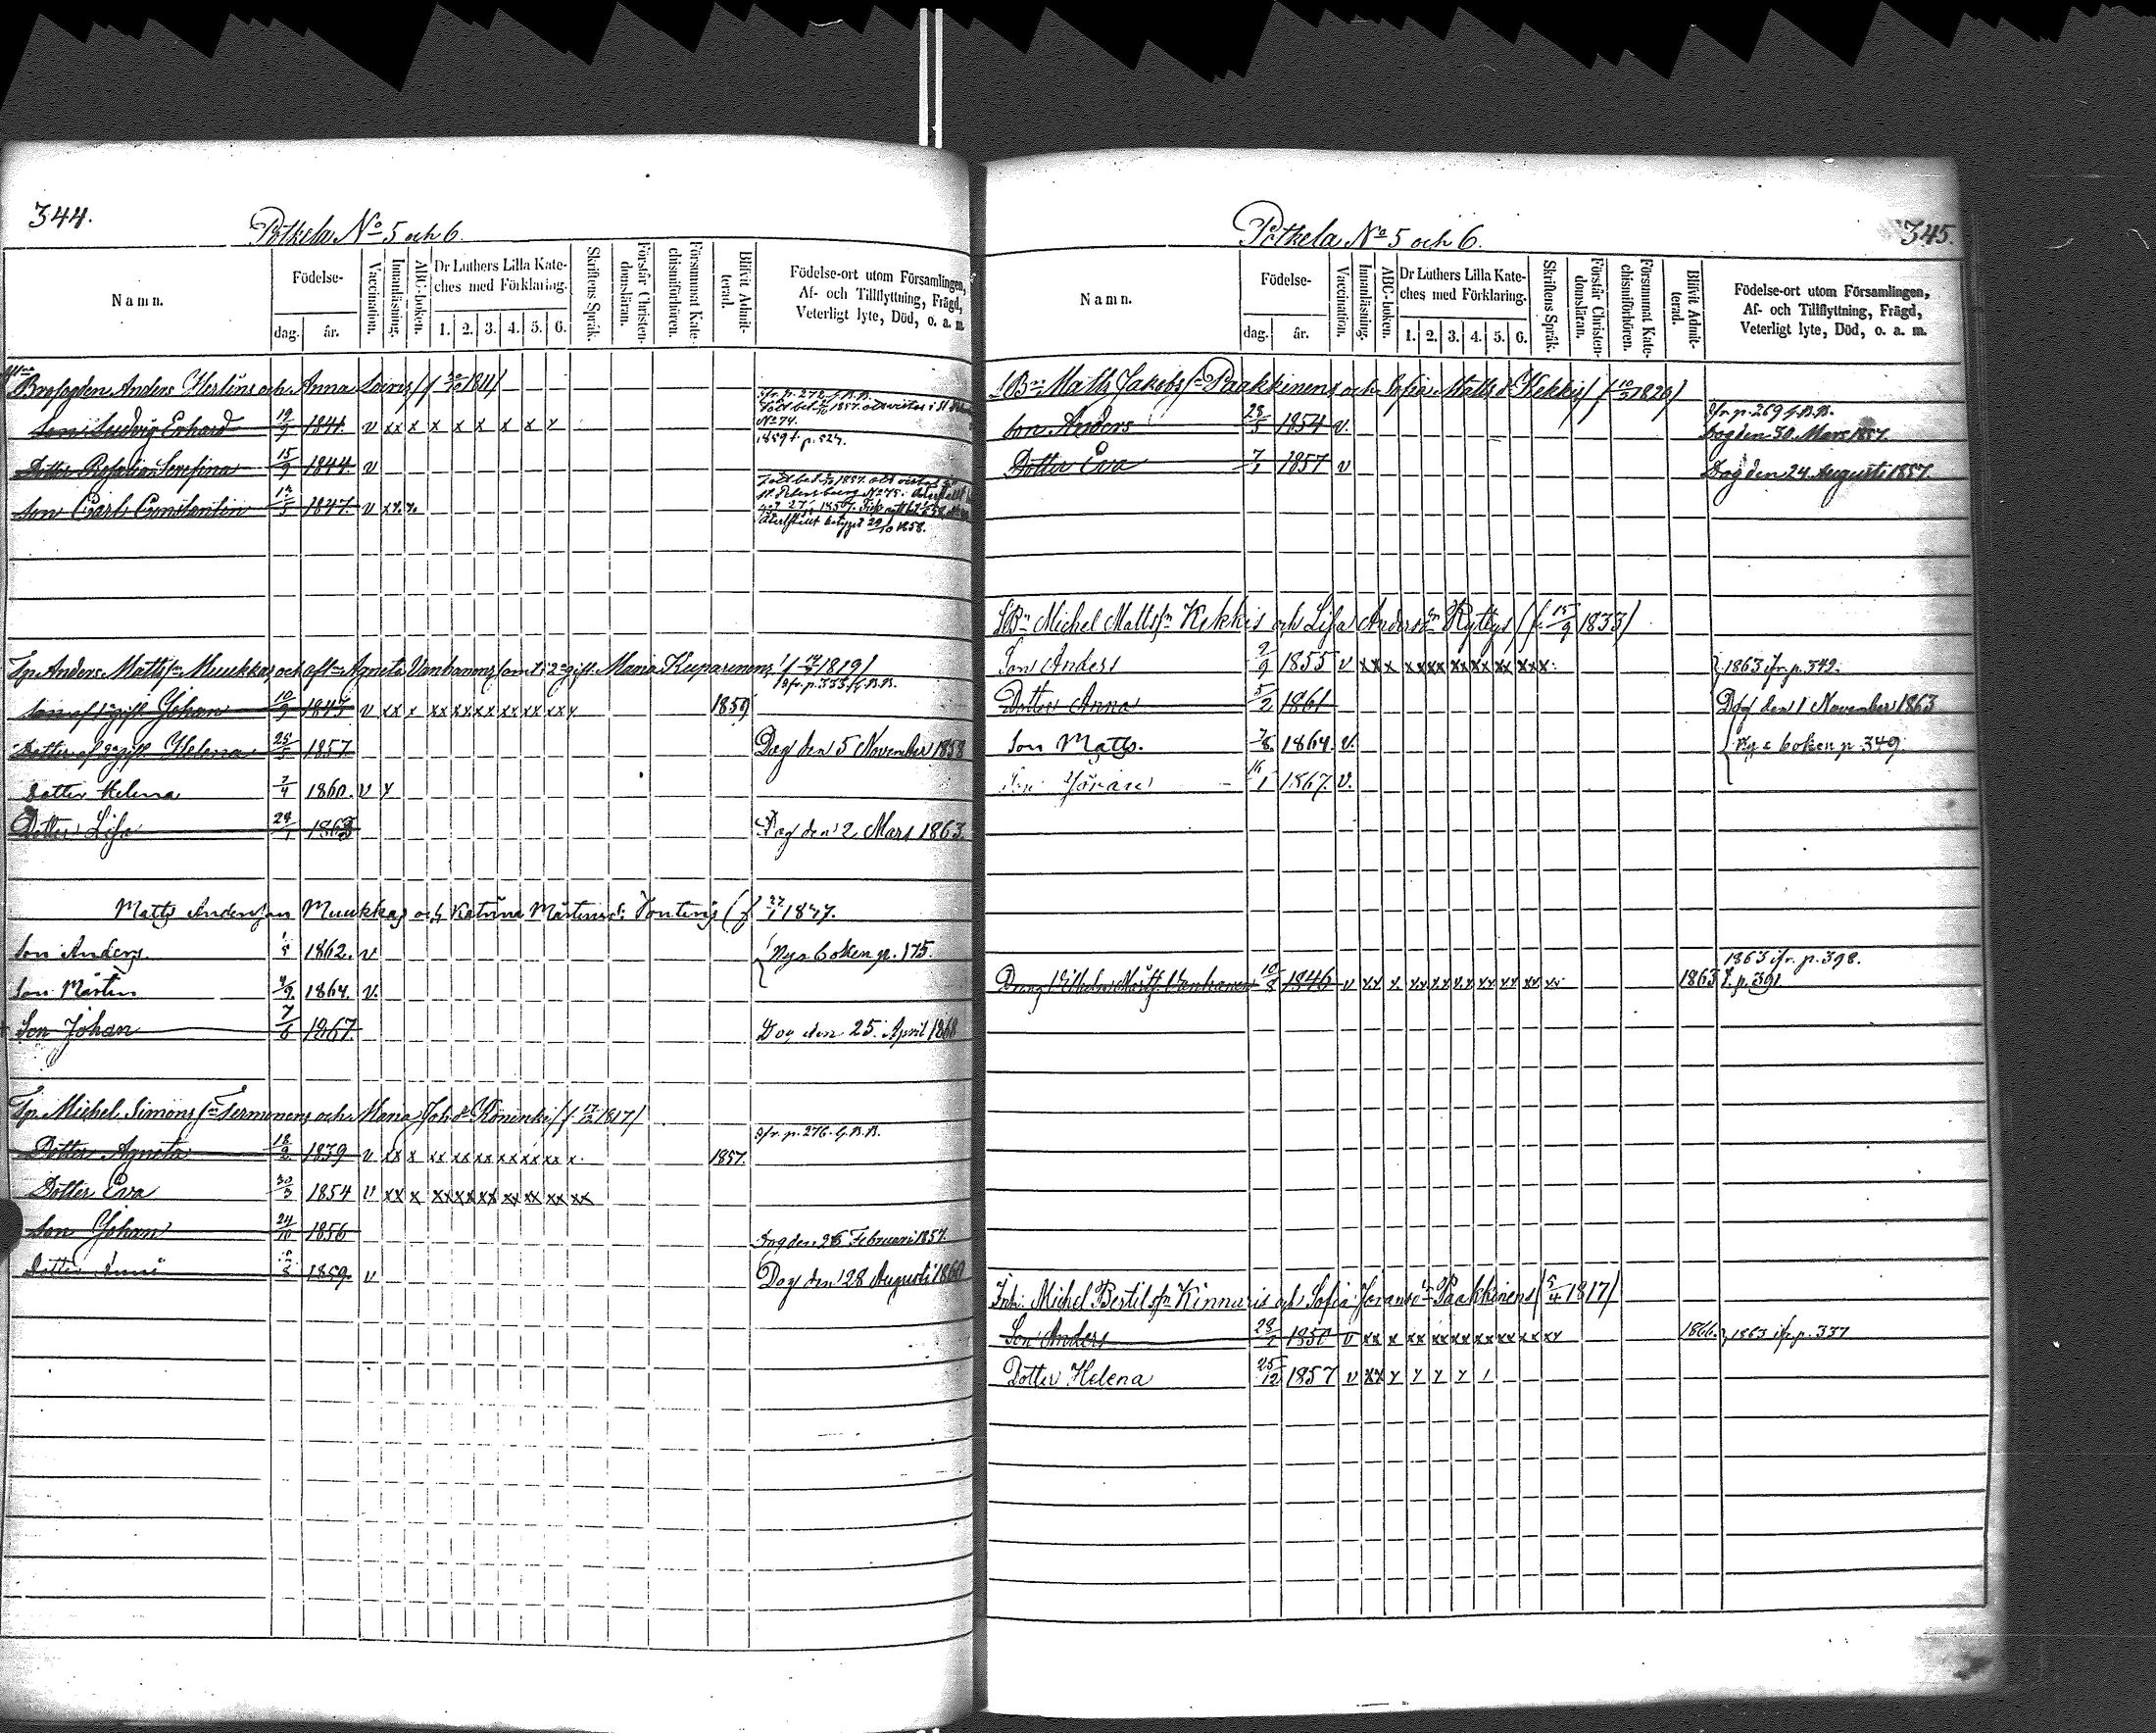 344.
Pötkela No 5 och 6.
Namn.
Födelse-
dag.
år.
Vaccination.
Innanläsning.
ABC-boken.
Dr Luthers Lilla Kate-
ches med Förklaring.
1. 2. 3. 4. 5. 6.
Skriftens Språk.
Förstår Christen-
domsläran.
Försummat Kate-
chismiförhören.
Blifvit Admit-
terad.
Födelse-ort utom Församlingen,
Af- och Tillflyttning, Frägd,
Veterligt lyte, Död, o. a. m.
Anders och Anna 1811
ifr. p. 272
Son Ludvig Erhard 19/9 1841. v xx x x x x x x x
No 74.
1859 f. p. 527.
Dotter Serefina 15/9 1844 v
Son Carl Constantin 1847 v
Anders Matts Muukkas och Agneta Vanhanens 2 gift. Maria Kuparinens 1819
ifr. p. 353
Son af 1 gift Johan 10/9 1843 v xx x xx xx xx xx xx xx x 1859
Dotter af 2 gift Helena 25/5 1857 Dog den 5 November 1858
Dotter Helena 7/4 1860. v x
Dotter Lisa 1863 Dog den 2 Mars 1863.
Matts Anderson Muukkas och Katrina Mårtens Pontinis 1847.
Son Anders 1/5 1862. v Nya boken p. 175.
Son Mårten 1864. v.
Son Johan 7/6 1867. Dog den 25 April 1868
Michel Simons Termonens och Maria Joh. d. 1817
ifr. p. 276.
Dotter Agneta 18/2 1839 v xx x xx xx xx xx xx xx x 1857.
Dotter Eva 30/3 1854 v xx x xx xx xx xx xx xx xx
Son Johan 24/10 1856 Dog den 26 Februari 1857.
Dotter 1859 v Dog den 28 Augusti 1860
345.
Pötkela No 5 och 6.
Namn.
Födelse-
dag.
år.
Vaccination.
Innanläsning.
ABC-boken.
Dr Luthers Lilla Kate-
ches med Förklaring.
1. 2. 3. 4. 5. 6.
Skriftens Språk.
Förstår Christen-
domsläran.
Försummat Kate-
chismiförhören.
Blifvit Admit-
terad.
Födelse-ort utom Församlingen,
Af- och Tillflyttning, Frägd,
Veterligt lyte, Död, o. a. m.
Matts Jakobs Paakkinens och Sofia Matts d. Kekkis
ifr. p. 269
Son Anders 1854 v. Dog den 30 Mars 1857.
Dotter Eva 7/1 1857 v Dog den 24 Augusti 1857.
Michel Matts Kekkis och Lisa Anders Ryttys 15/9 1833
Son Anders 2/9 1855 v xx x xx xx xx xx xx xx 1863 ifr. p. 342.
Dotter Anna 5/2 1861 Dog den 1 November 1863
Son Matts. 7/8 1864. v. Nya boken p. 349.
Son Jöran 16/1 1867. v.
1863 ifr. p. 398.
Dräng Vilhelm Vanhanen 1846 v xx x xx xx xx xx xx xx xx 1863 f. p. 391
Inh. Michel Bertils Kinnaris och Sofia Jörans d. Paakkinens 5/4 1817
Son Anders 28/2 1850 v xx x xx xx xx xx xx x xx 1866. 1863 ifr. p. 337
Dotter Helena 25/12 1857 v xx x x x x 1